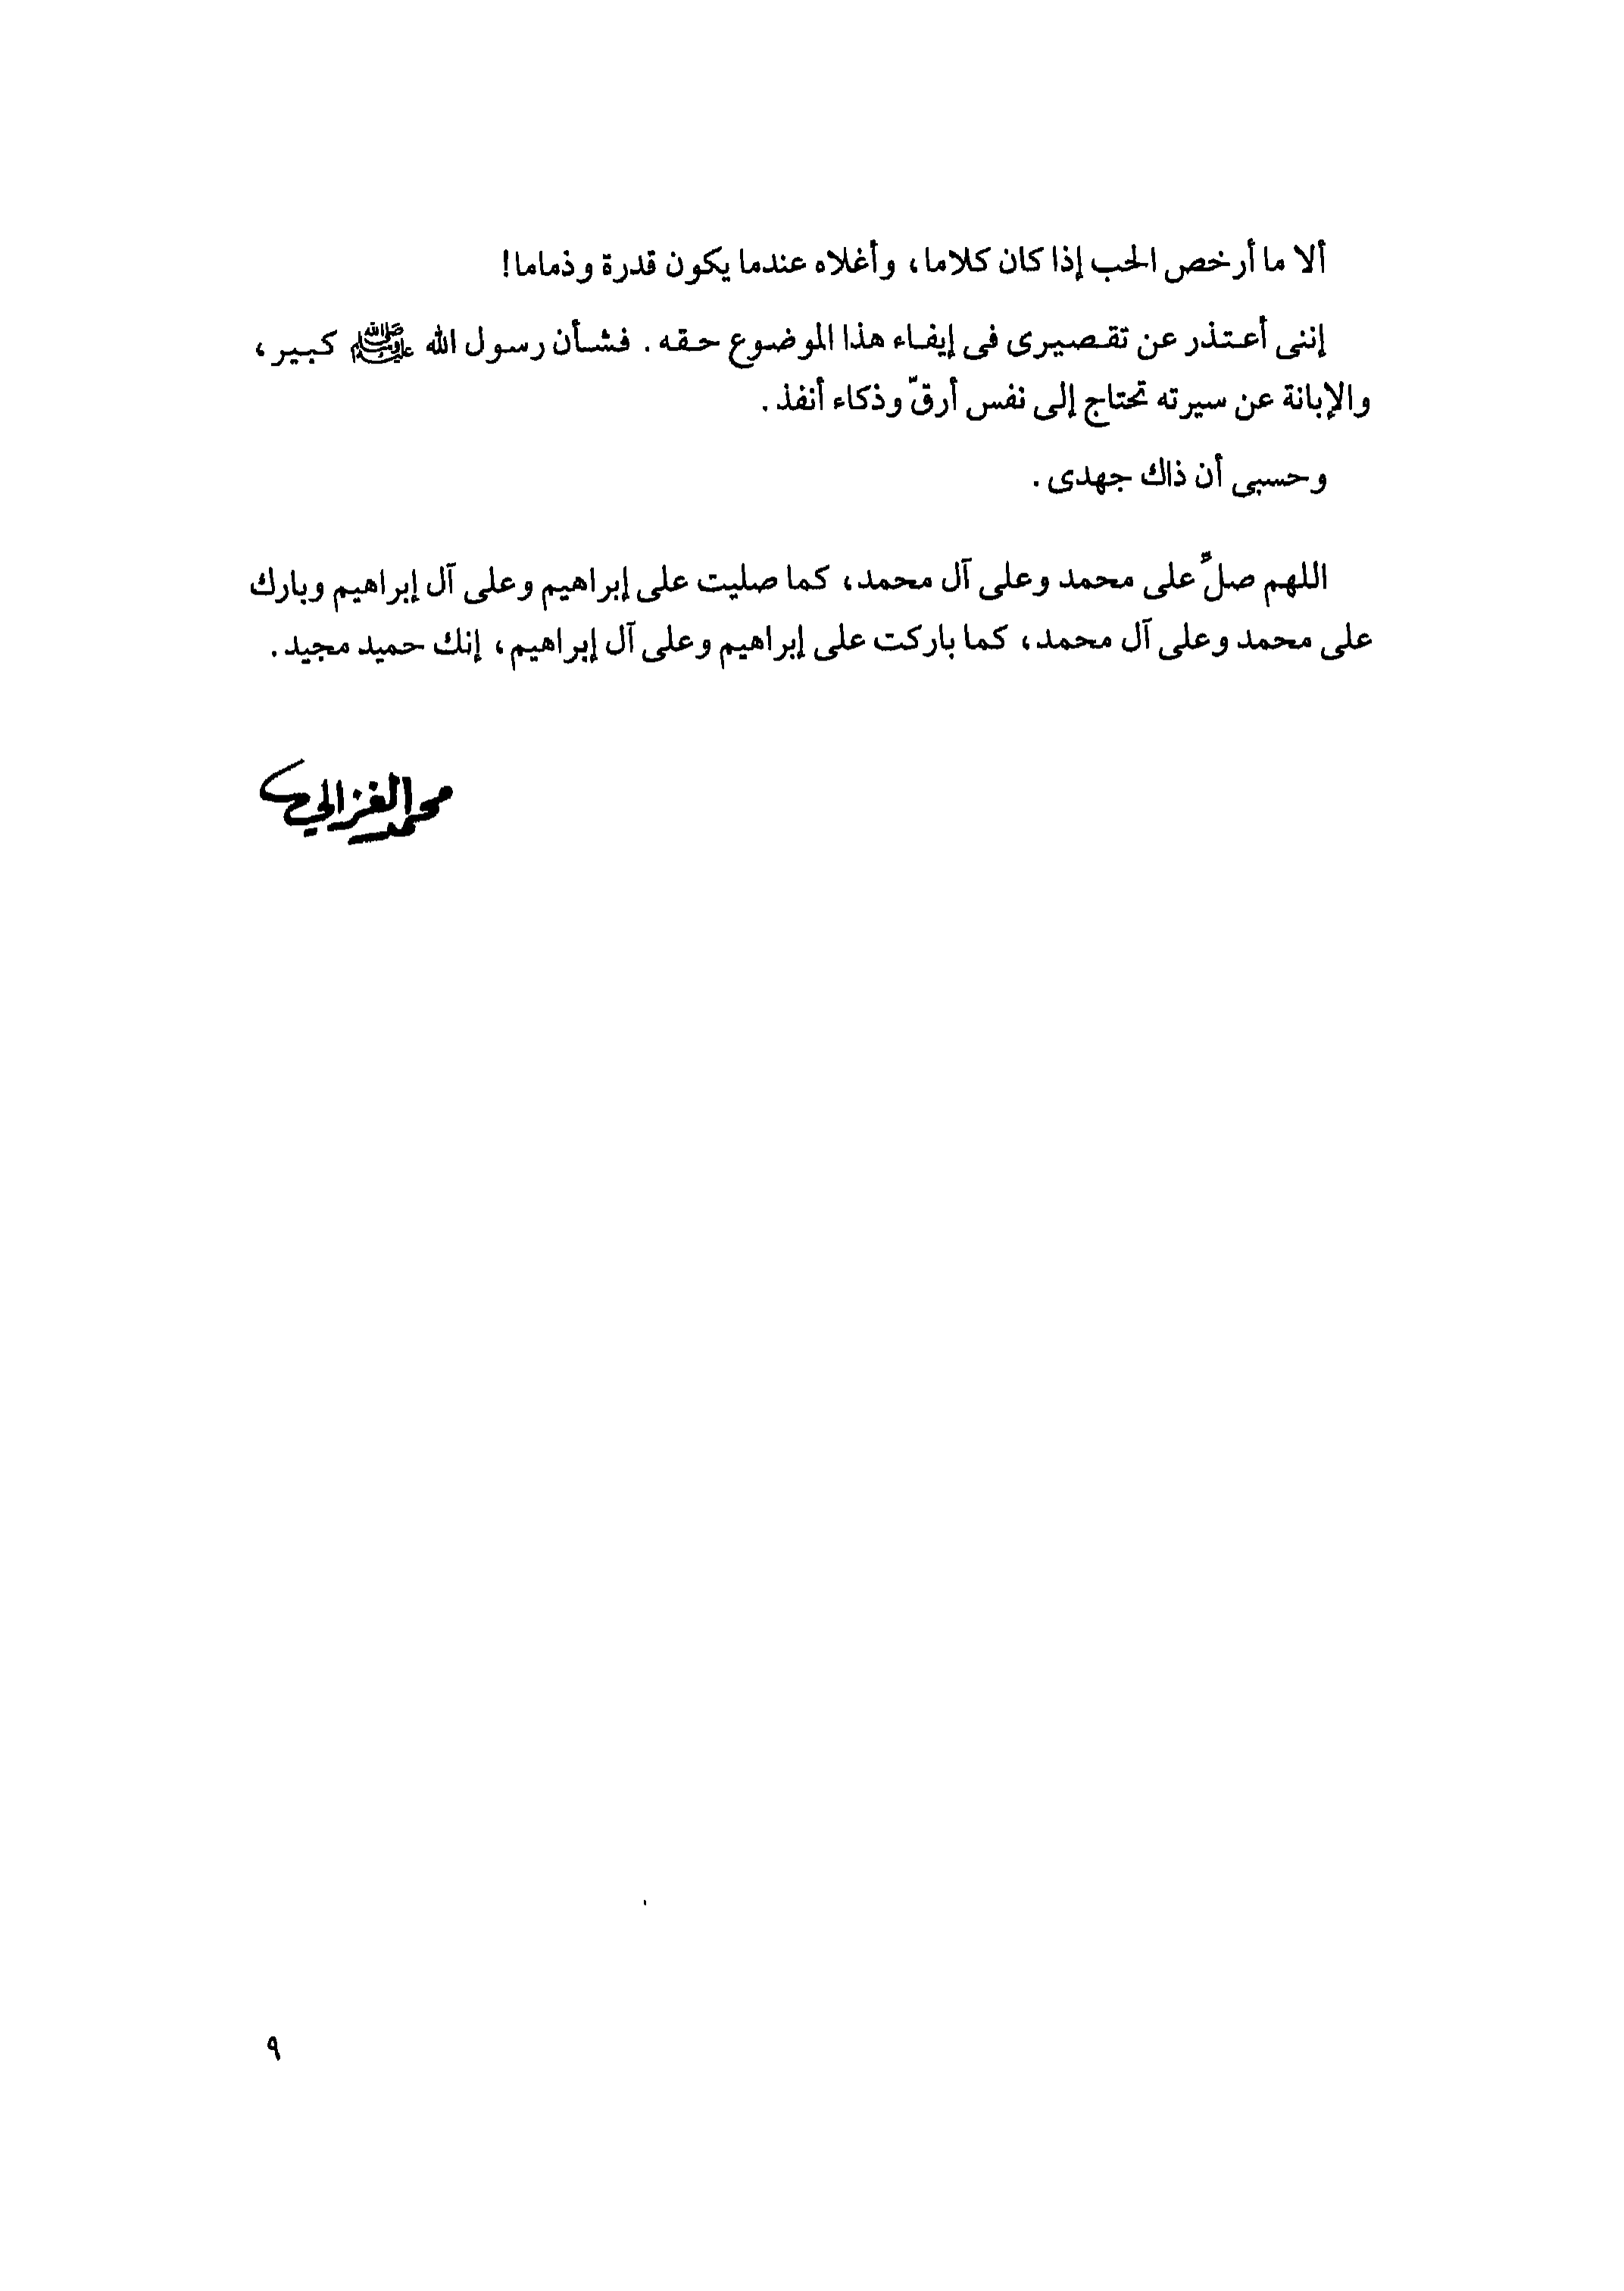 ألا ما أرخص الحب إذا كان كلاما، وأغلاه عندما يكون قدرة وذماما!
إننى أعتذر عن تقصيرى فى إيفاء هذا الموضوع حقه. فشأن رسول الله ﷺ كبير،
والإبانة عن سيرته تحتاج إلى نفس أرقّ وذكاء أنفذ.
وحسبى أن ذاك جهدى.
اللهم صلِّ على محمد وعلى آل محمد، كما صليت على إبراهيم وعلى آل إبراهيم وبارك
على محمد وعلى آل محمد، كما باركت على إبراهيم وعلى آل إبراهيم، إنك حميد مجيد.
محمد الغزالي
٩